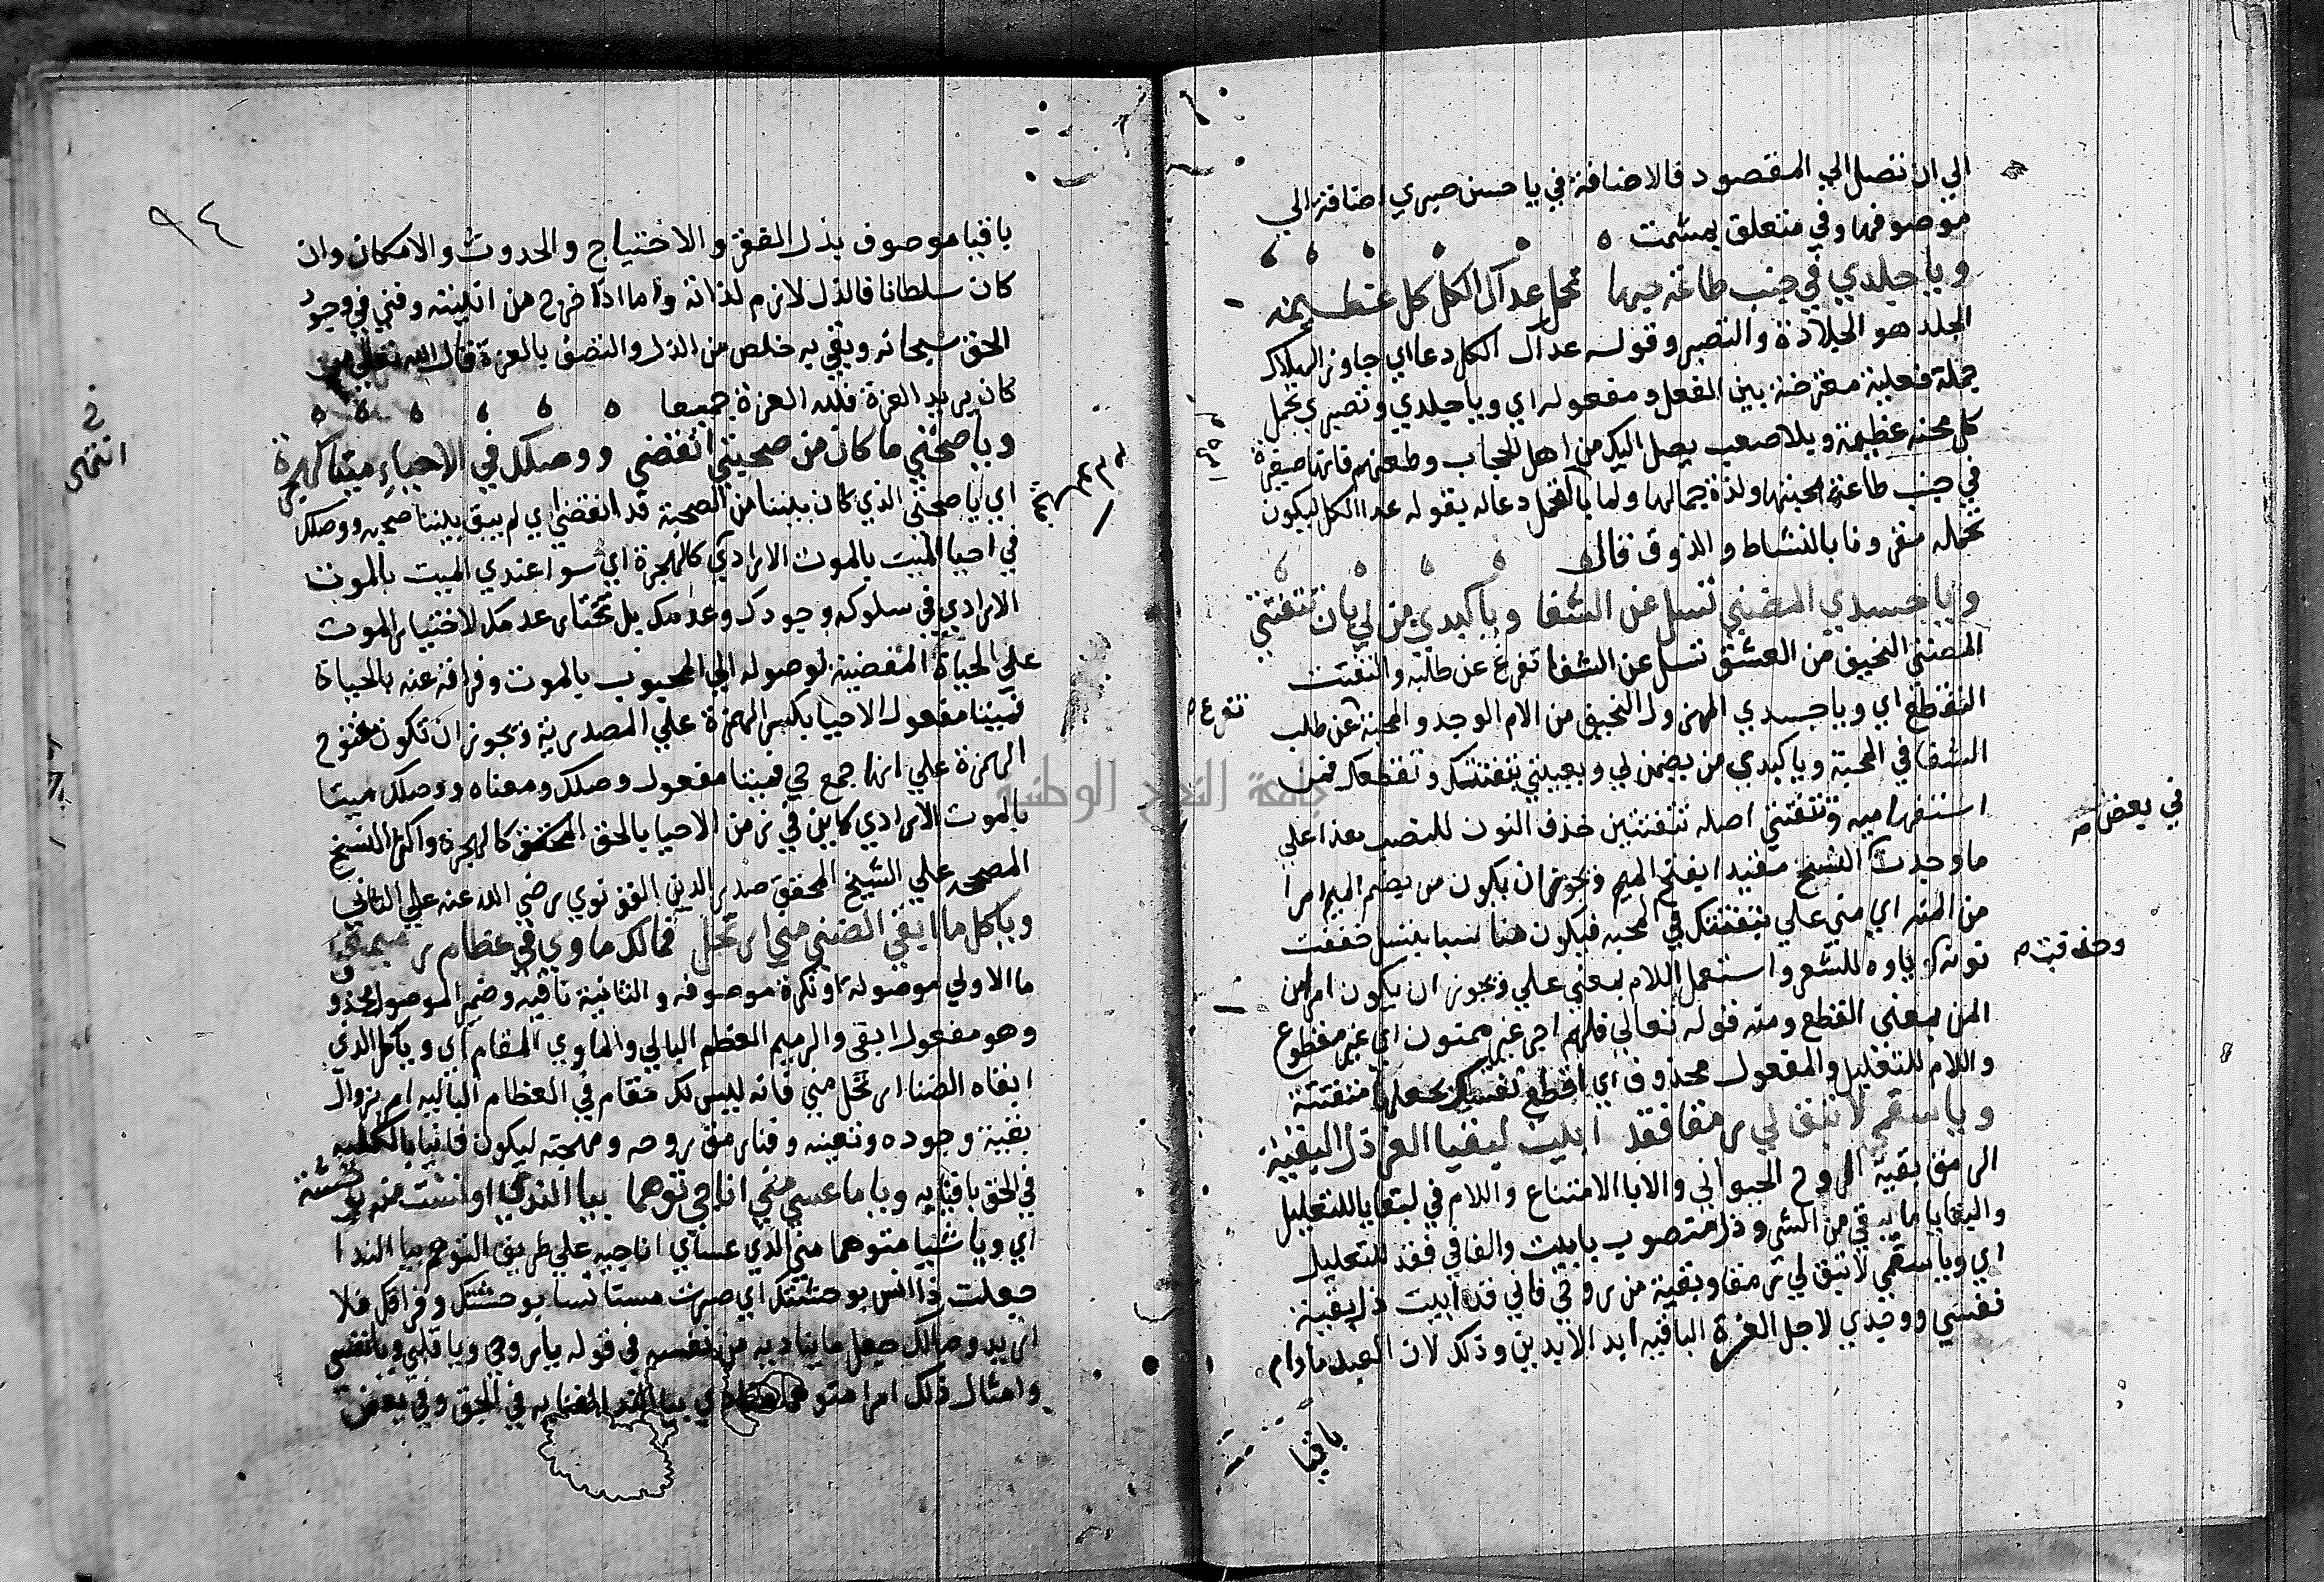 الي ان نصل الي المقصود فالاضافة في يا حسن صبري اضافة الي
موصوفها وفي متعلق بمشمت
ويا جلدي في جنب طاعة حبها تحمل عداك الكل كل عظيمة
الجلد هو الجلادة والتصبر وقوله عداك الكل دعا اي جاوز الهلاك
جملة فعلية معترضة بين الفعل ومفعوله اي ويا جلدي وتصبري تحمل
كل محنة عظيمة وبلا صعب يصل اليك من اهل الحجاب وطعنهم فانها صغيرة
في جنب طاعة محبتها ولذة جمالها ولما بالتحمل دعا له بقوله عدا الكل ليكون
تحمله مقرونا بالنشاط والذوق فقال
ويا جسدي المضني تسل عن الشفا ويا كبدي من لي بان تتفتتي
المضني النحيف من العشق تسل عن الشفا تفرغ عن طلبه والتفتت
التقطع اي ويا جسدي المهزول النحيف من الام الوجد والمحبة عن طلب
تفرغ
الشفا في المحبة ويا كبدي من يضمن لي ويعينني بتفتتك وتقطعك فمن
استفهاميه وتتفتتي اصله تتفتتين حذف النون للنصب هذا علي
في بعض
ما وجدت النسخ مقيدا بفتح الميم ويجوز ان يكون من بضم الميم امرا
من المنه اي مني علي بتفتتك في محبه فيكون مناسبا بتسل خففت
نونه كـ ياوه للشعر واستعمل اللام بمعني علي ويجوز ان يكون امرا من
وحذفت
المن بمعني القطع ومنه قوله تعالي فلهم اجر غير ممنون اي غير مقطوع
واللام للتعليل والمفعول محذوف اي اقطع نفسك بجعلها متفتتة
ويا سقمي لا تبق لي رمقا فقد ابيت لبقيا العز ذل البقية
الرمق بقية الروح الحيواني والابا الامتناع واللام في لبقايا للتعليل
والبقايا ما يبقي من الشي وذل منصوب بابيت والفا في فقد للتعليل
اي ويا سقمي لا تبق لي رمقا وبقية من روحي فاني قد ابيت ذل بقية
نفسي ووجدي لاجل العزة الباقيه ابد الابدين وذلك لان العبد ما دام
باقيا
٩٤
باقيا موصوف بذل الفقر والاحتياج والحدوث والامكان وان
كان سلطانا فالذل لازم لذاته واما اذا خرج من انيته وفني في وجود
الحق سبحانه وبقي به خلص من الذل واتصف بالعزة قال الله تعالي من
كان يريد العزة فلله العزة جميعا
ويا صحتي ما كان من صحبتي انقضي ووصلك في الاحياء ميتا كهجرة
اي يا صحتي الذي كان بيننا من الصحبة قد انقضي اي لم يبق بيننا صحبه ووصلك
في احيا الميت بالموت الارادي كالهجرة اي سوا عندي الميت بالموت
الارادي في سلوكه وجودك وعدمك بل تختار عدمك لاختيار الموت
علي الحياة المفضية لوصوله الي المحبوب بالموت وفراقه عنه بالحياة
فميتا مفعول الاحيا بكسر الهمزة علي المصدرية ويجوز ان تكون مفتوح
الهمزة علي انها جمع حي فميتا مفعول وصلك ومعناه ووصلك ميتا
بالموت الارادي كاين في زمن الاحيا بالحق المحقق كالهجرة واكثر النسخ
المصححه علي الشيخ المحقق صدر الدين القونوي رضي الله عنه علي الثاني
ويا كل ما ابقي الضني مني ارتحل فمالك ماوي في عظام رميمة
ما الاولي موصوله او نكرة موصوفه والثانية نافيه وضمير الموصول محذوف
وهو مفعول ابقي والرميم العظم البالي والماوي المقام اي ويا كل الذي
ابقاه الضنا ارتحل مني فانه ليس لك مقام في العظام الباليه ام بزوال
بقية وجوده وتعينه وفنا رمق روحه ومهجته ليكون فانيا بالكليه
في الحق باقيا به ويا ما عسي مني اناجي توهما بيا الندي اونست منك بوحشة
اي ويا شيا متوهما مني الذي عساي اناجيه علي طريق التوهم بيا الندا
جعلت ذا انس بوحشتك اي صرت مستانسا بوحشتك وفراقك فلا
اريد وصالك جعل ما يناديه من نفسه في قوله يا روحي ويا قلبي ويا نفسي
وامثال ذلك امرا متوهما بيا الندا لفنايه في الحق وفي بعض